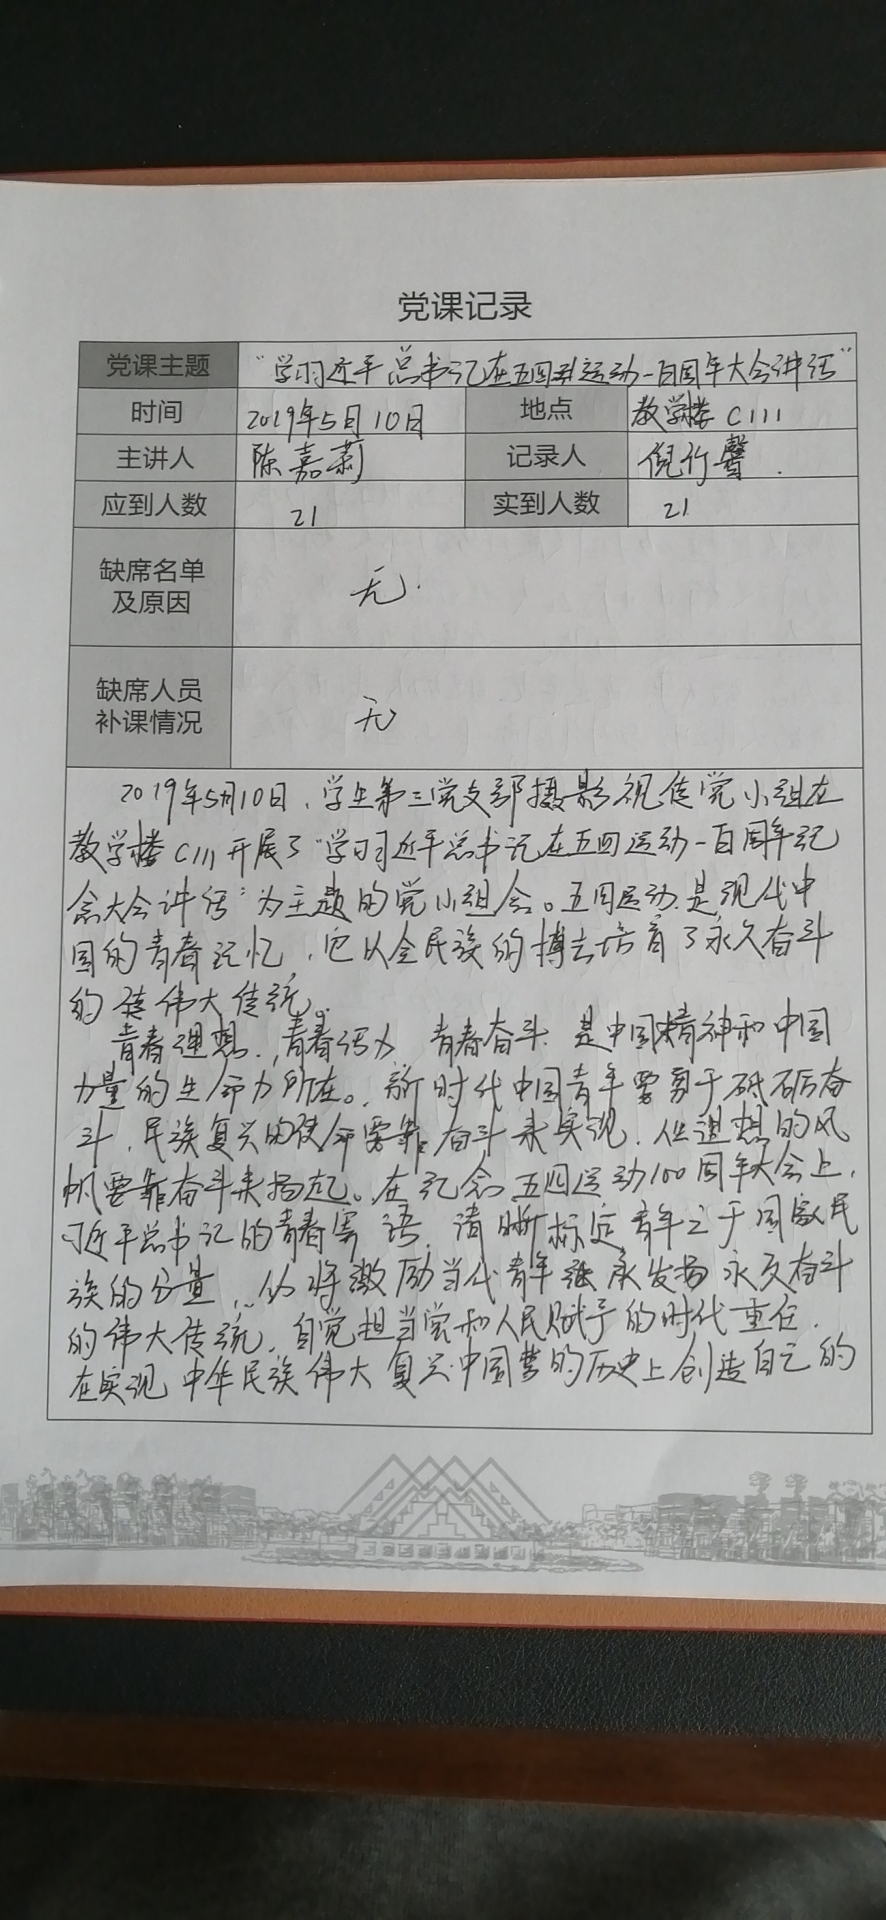 党课记录
党课主题 “学习近平总书记在五四运动一百周年大会讲话”
时间 2019年5月10日 地点 教学楼C111
主讲人 陈嘉莉 记录人 倪竹馨.
应到人数 21 实到人数 21
缺席名单
及原因 无.
缺席人员
补课情况 无
2019年5月10日,学生第三党支部摄影视传党小组在
教学楼C111开展了“学习习近平总书记在五四运动一百周年纪
念大会讲话”为主题的党小组会。五四运动是现代中
国的青春记忆,它以全民族的搏击培育了永久奋斗
的伟大传统。
青春理想,青春活力,青春奋斗,是中国精神和中国
力量的生命力所在。新时代中国青年要勇于砥砺奋
斗,民族复兴的使命要靠奋斗来实现,但理想的风
帆要靠奋斗来扬起。在纪念五四运动100周年大会上,
习近平总书记的青春寄语,清晰标定青年之于国家民
族的分量,必将激励当代青年继承发扬永久奋斗
的伟大传统,自觉担当党和人民赋予的时代重任,
在实现中华民族伟大复兴中国梦的历史上创造自己的